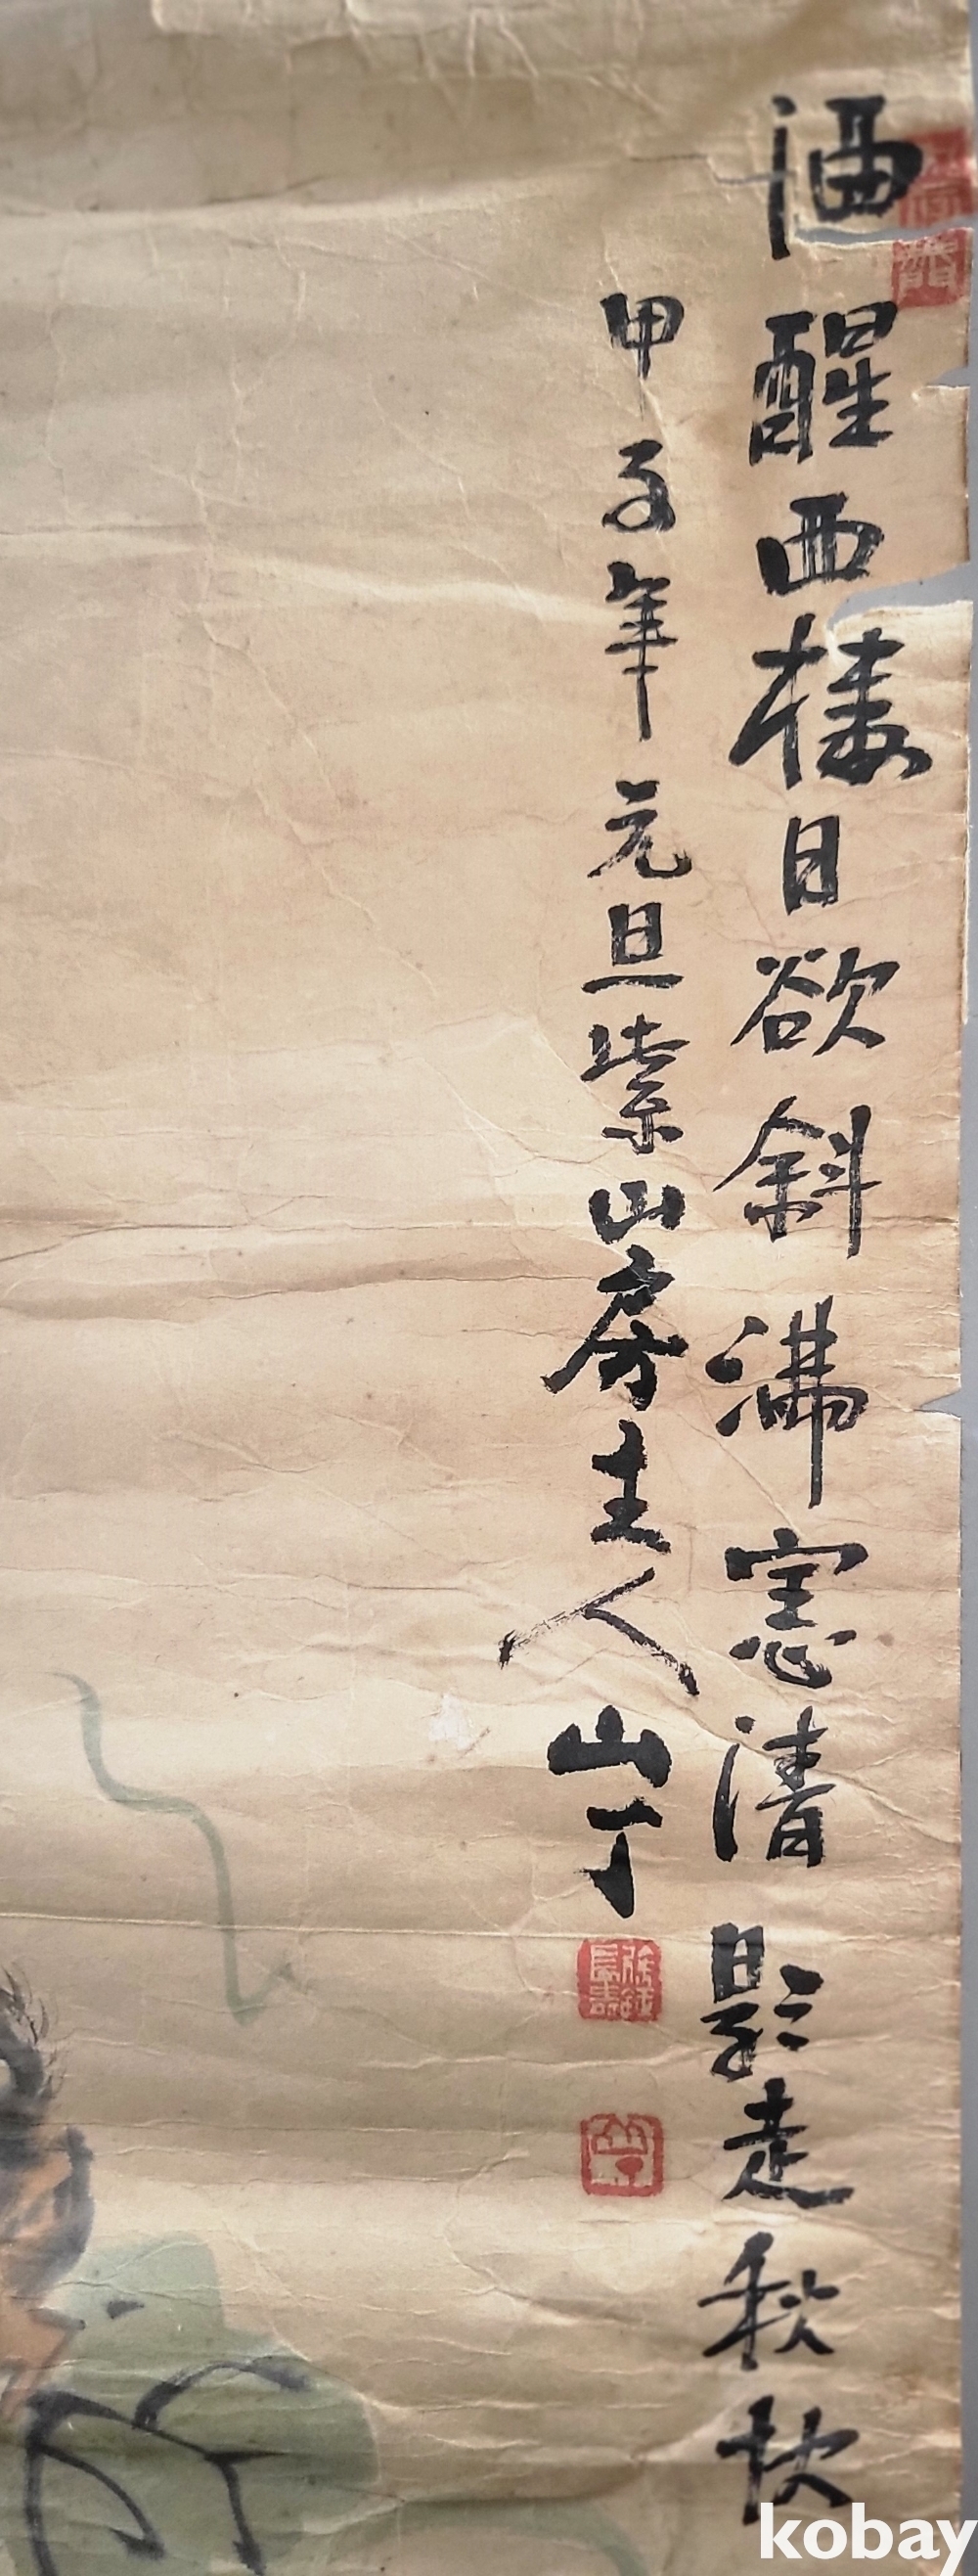 酒醒西樓日欲斜滿窻清影走秋
甲子年元旦紫山房主人山丁
山丁
kobay